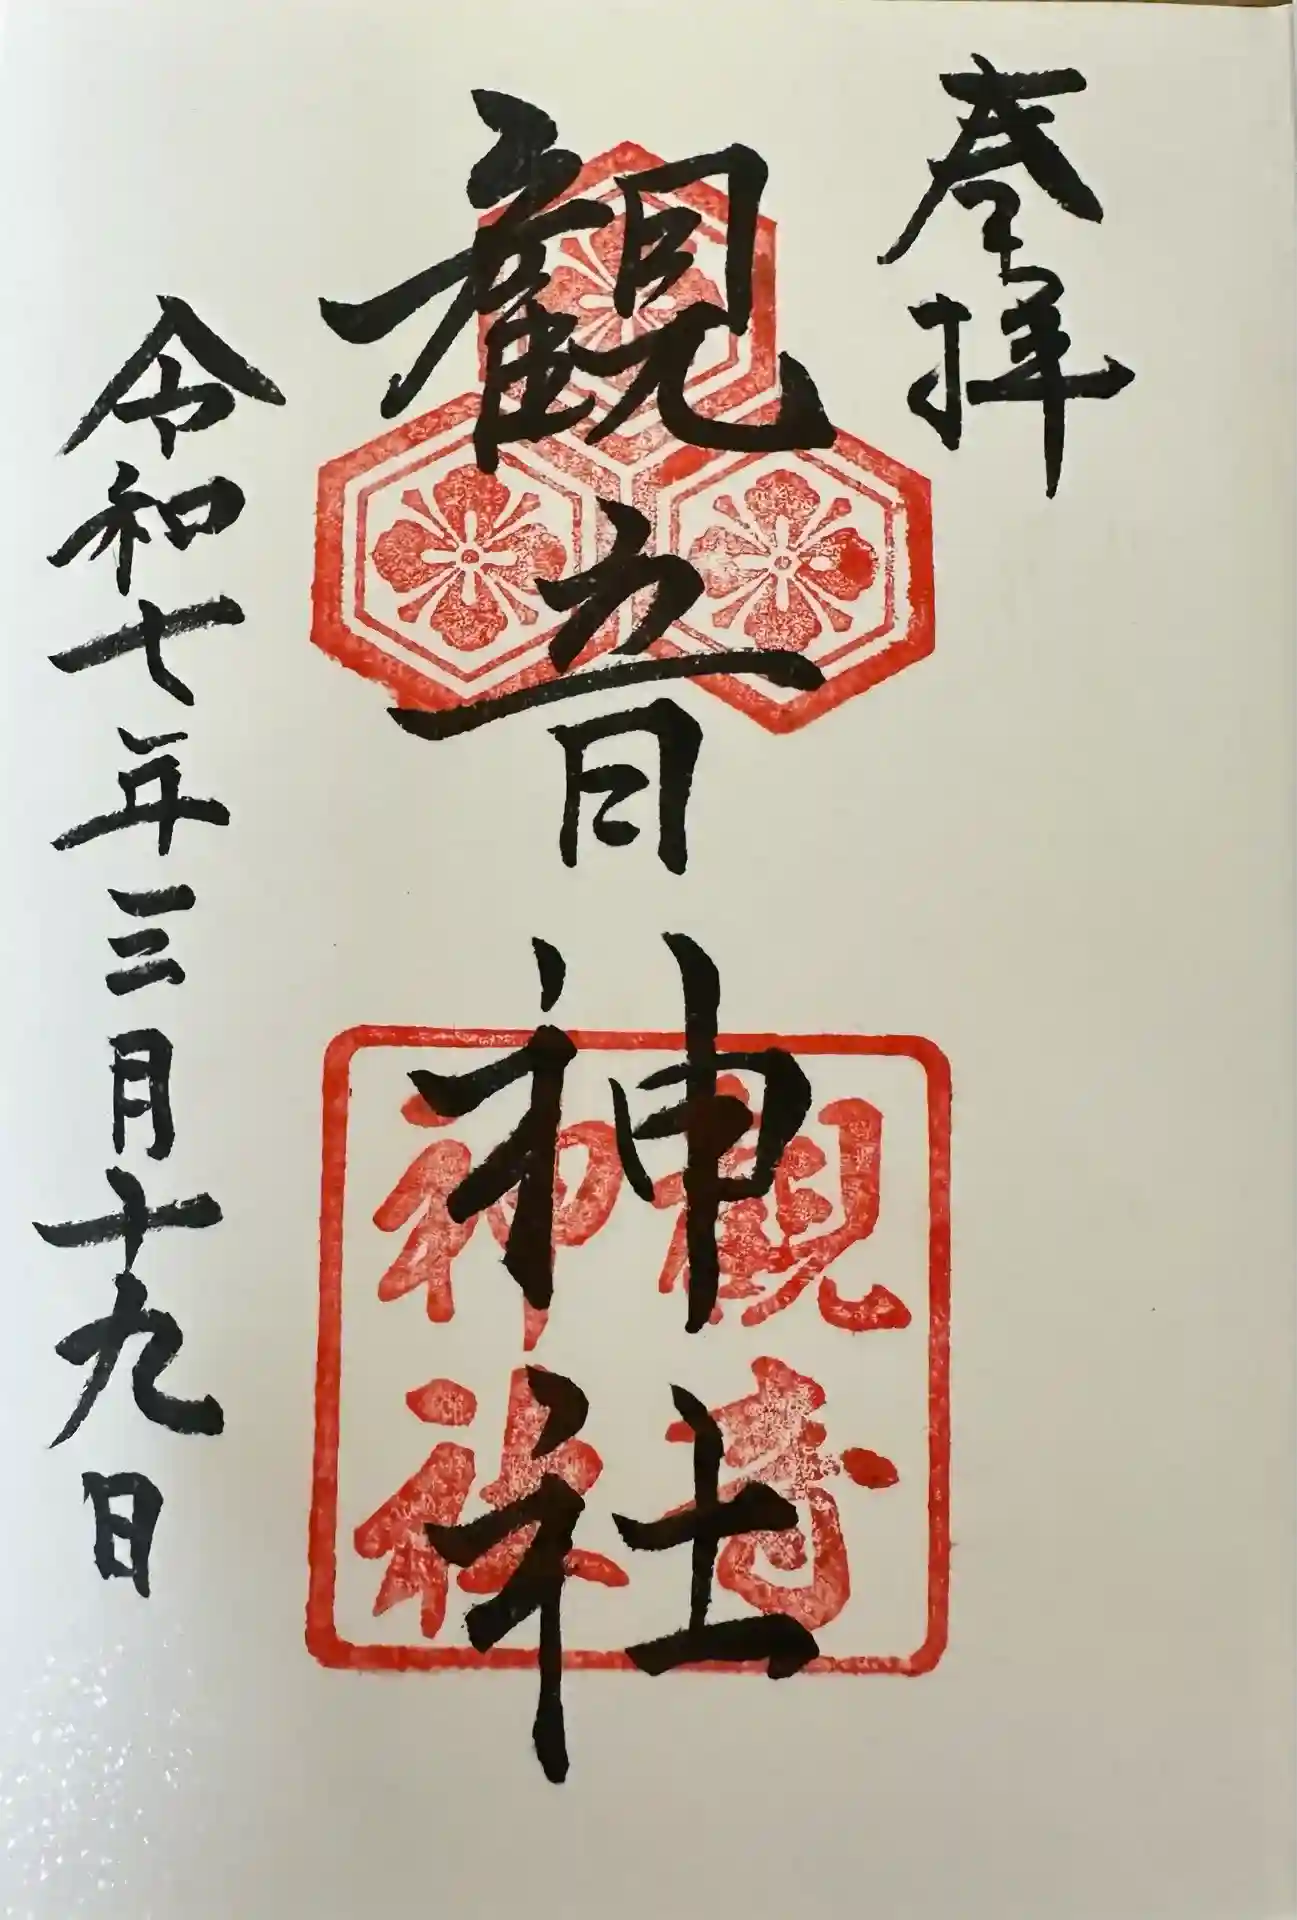 奉拝
観音神社
観音
神社
令和七年三月十九日